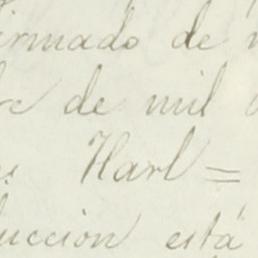 irmado de
re de mil
Harl=
ucción está